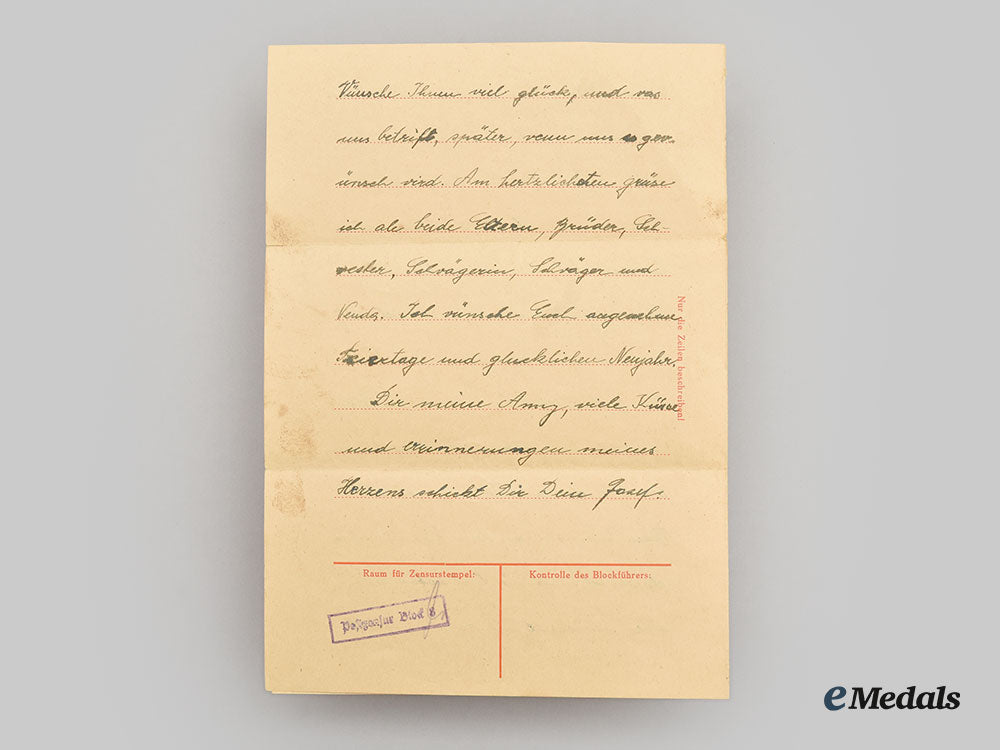 Vünsche Ihnen viel glück, und vas
uns betrift, später, venn uns es gev-
ünsch vird. Am hertzlichsten grüse
ich ale beide Eltern, Brüder, Sch-
vester, Schvägerin, Schväger und
Venda. Ich vünsche Euch angenehme
Feiertage und glucklichen Neujahr.
Dir meine Anny, viele Küsse
und errinnerungen meines
Herzens schickt Dir Dein Josef.
Nur die Zeilen beschreiben!
Raum für Zensurstempel:
Kontrolle des Blockführers:
Postzensur Block 8
eMedals